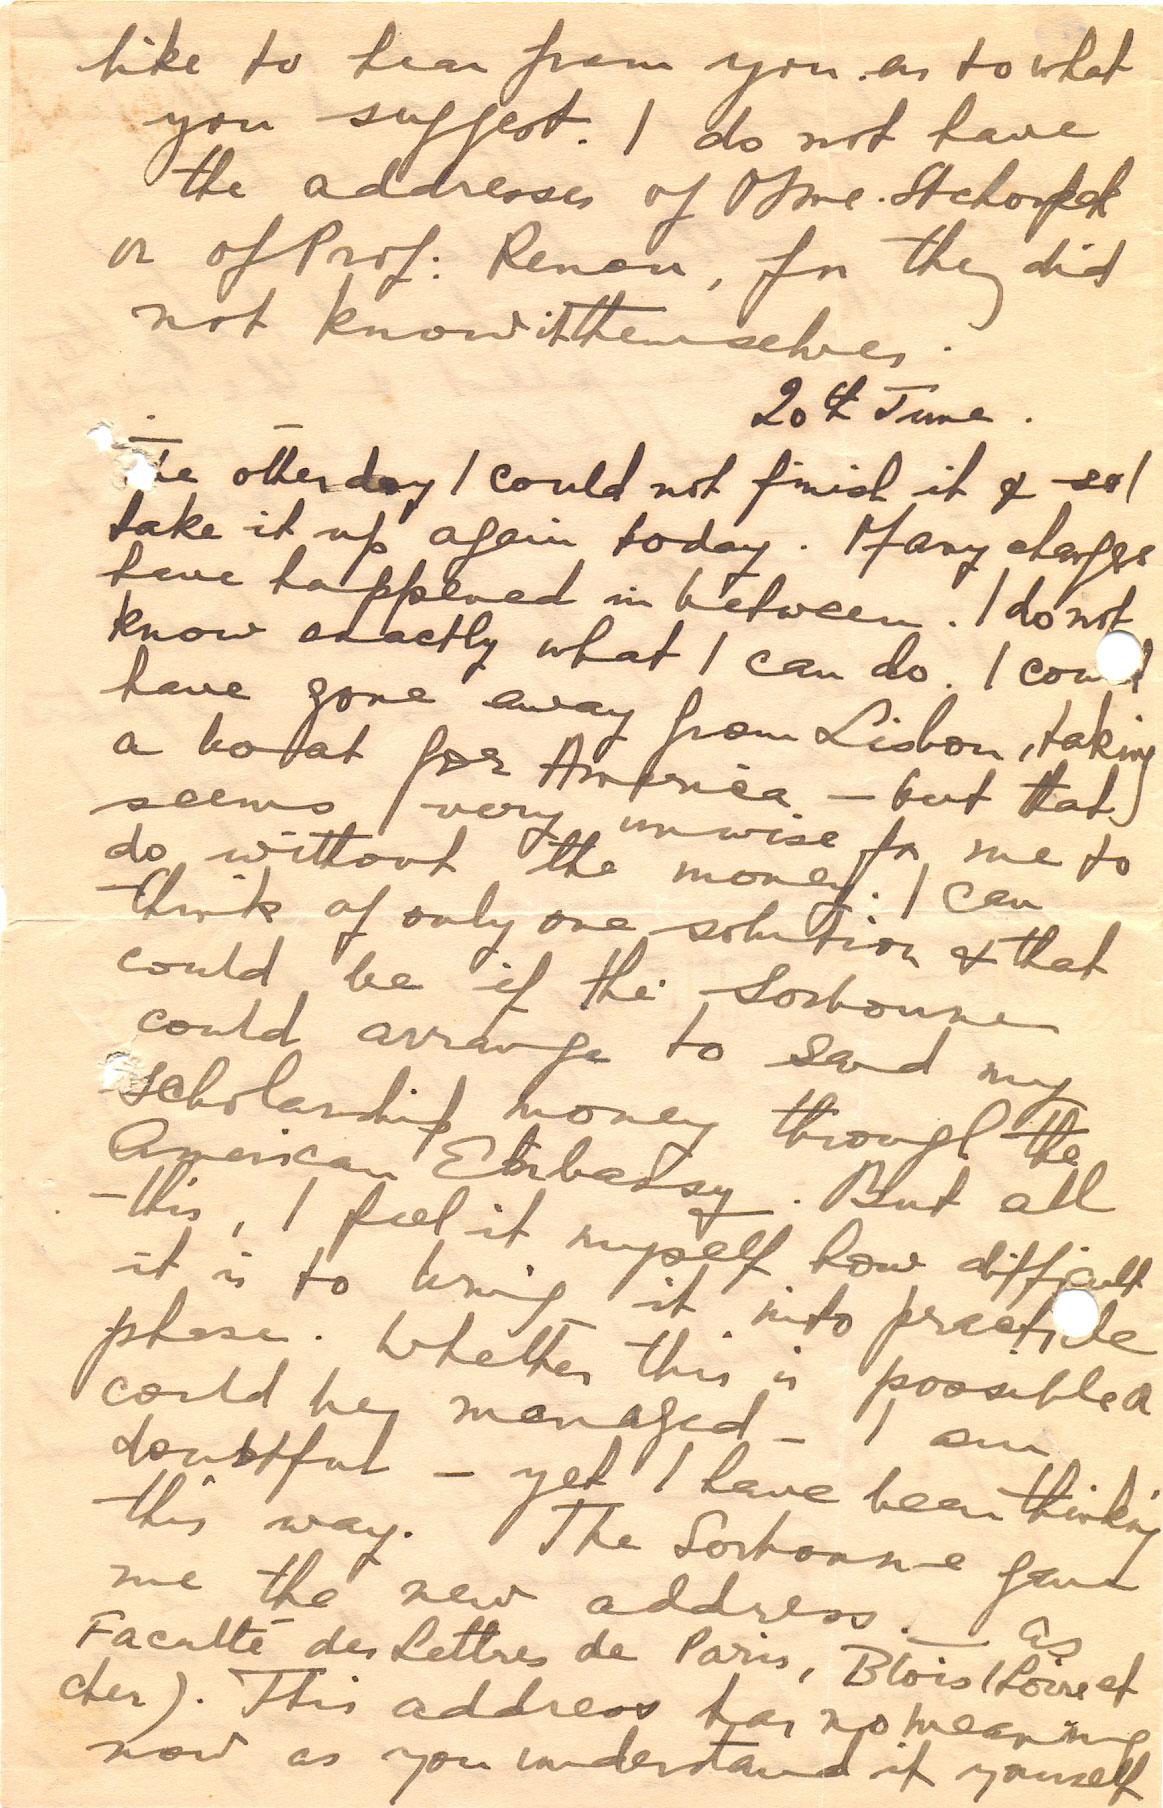 like to hear from you as to what
you suggest. I do not have
the addresses of Mme. Stchoupak
or of Prof: Renou, for they did
not know it themselves.
20th June.
The other day I could not finish it & so I
take it up again today. Many changes
have happened in between. I do not
know exactly what I can do. I could
have gone away from Lisbon, taking
a boat for America – but that
seems very unwise for me to
do without the money. I can
think of only one solution & that
could be if the Sorbonne
could arrange to send my
scholarship money through the
American Embassy. But all
this, I feel it myself how difficult
it is to bring it into practicle
phase. Whether this is possible
could be managed – I am
doubtful – yet I have been thinking
this way. The Sorbonne gave
me the new address – as
Faculté des Lettres de Paris, Blois (Loire et
cher). This address has no meaning
now as you understand it yourself